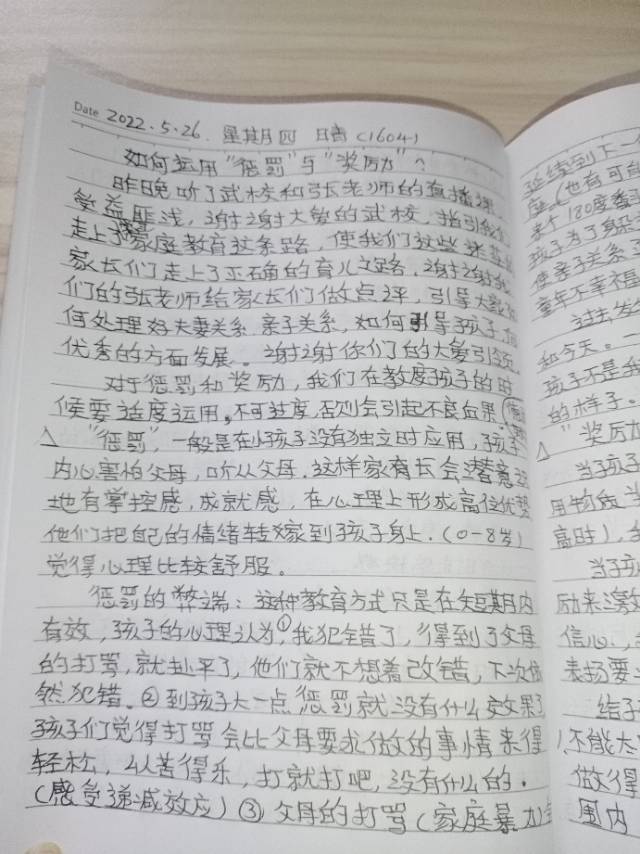 Date 2022.5.26. 星期四 日音(1604)
如何运用“惩罚”与“奖励”？
昨晚听了武校和张老师的直播课,
受益匪浅,谢谢大爱的武校,指引我们
走上了家庭教育这条路,使我们这些迷茫
家长们走上了正确的育儿之路,谢谢我
们的张老师给家长们做点评,引导大家如
何处理好夫妻关系.亲子关系,如何引导孩子,向
优秀的方面发展。谢谢你们的大爱引领。
对于惩罚和奖励,我们在教育孩子的时
候要适度运用,不可过度,否则会引起不良后果。
△“惩罚”,一般是在小孩子没有独立时应用,孩子
内心害怕父母,听从父母.这样家长会潜意识
地有掌控感,成就感,在心理上形成高位优势
他们把自己的情绪转嫁到孩子身上.(0-8岁)
觉得心理比较舒服。
惩罚的弊端:这种教育方式只是在短期内
有效,孩子的心理认为①我犯错了,得到了父母
的打骂,就扯平了,他们就不想着改错,下次依
然犯错.②到孩子大一点惩罚就没有什么效果了
孩子们觉得打骂会比父母要求做的事情来得
轻松,以苦得乐,打就打吧,没有什么的.
(感受递减效应)③父母的打骂(家庭暴力)会
延续到下一
座(也有可能
来个180度
孩子为了
使亲子关系
童年不幸福
过去发
和今天。一
孩子不是我
的样子。
△“奖励
当孩子
用物质当
高时),
当孩
励来激
信心.,
表扬要
给孩子
1.不能太
做得
围内